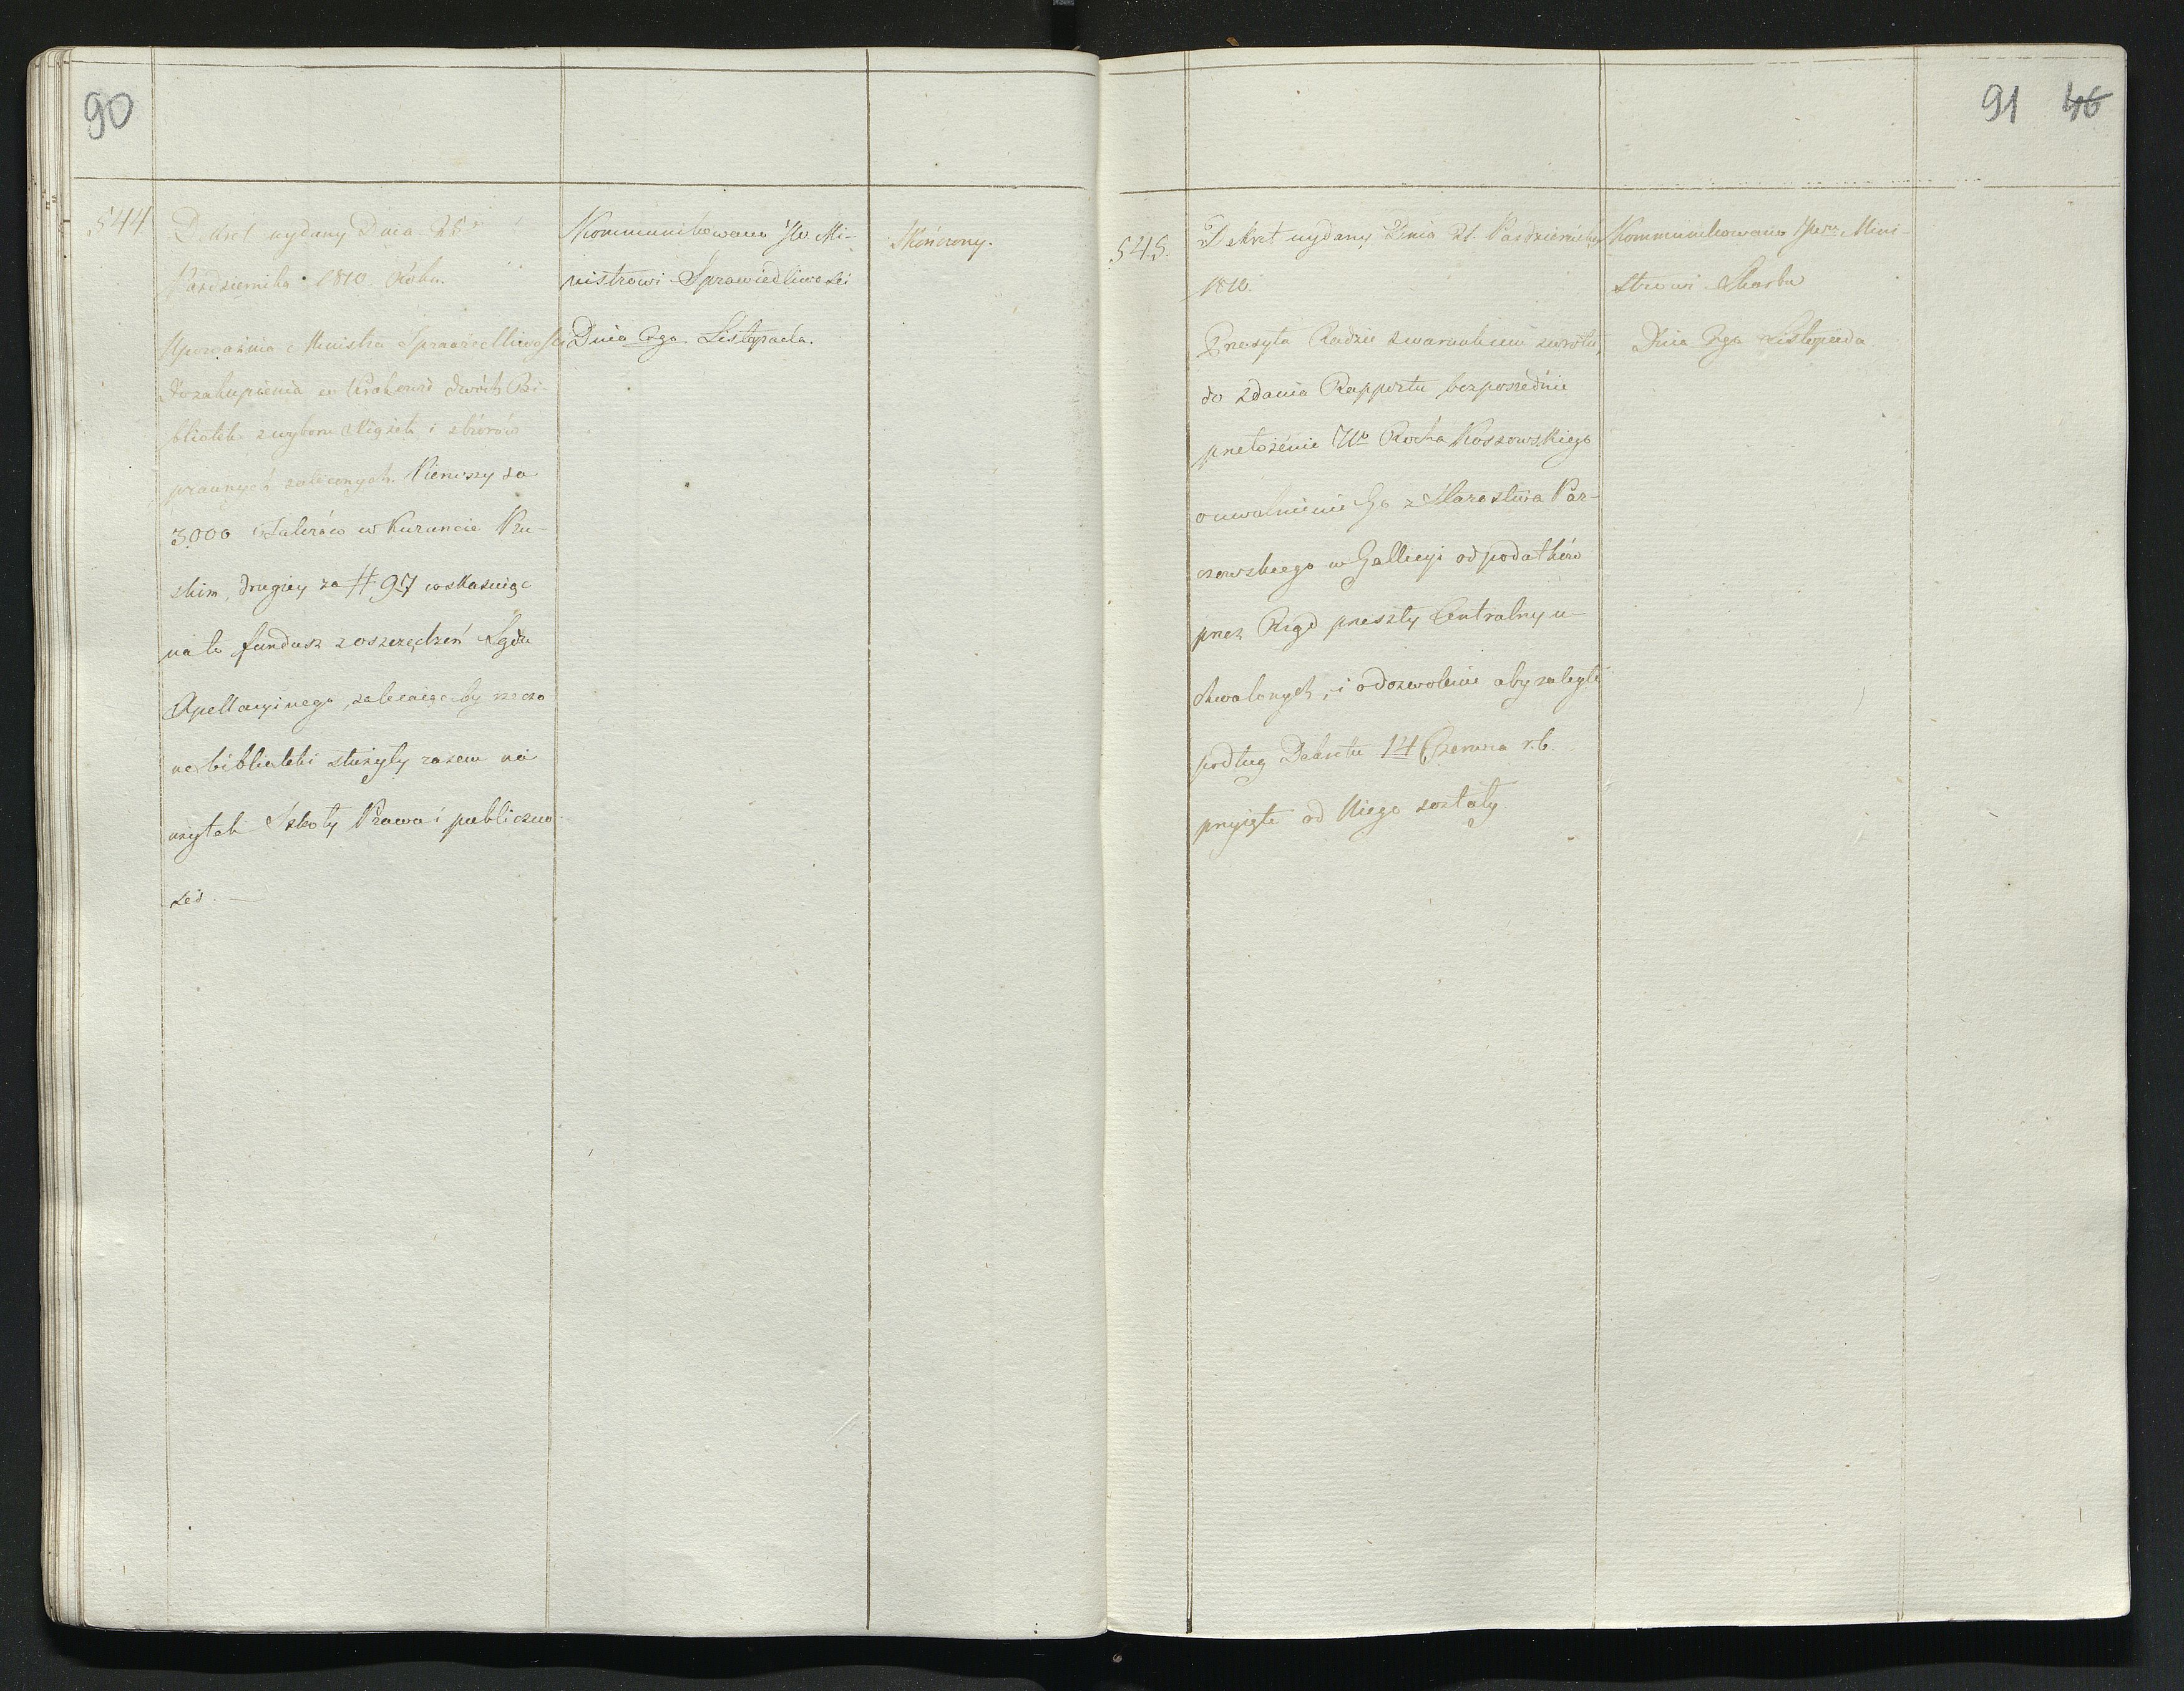 90
544
Dekret wydany Dnia 28
Października 1810. Roku.
Upoważnia Ministra Sprawiedliwości
do zakupienia w Krakowie dwóch Bi-
bliotek z wyboru Xiążek i zbiorów
prawnych złożonych. Pierwszy za
3000 Talarów w Kurancie Pru-
skim, drugiey za # 97 wskazuiąc
na to fundusz z oszczędzeń Sądu
Apellacyinego, zalecaiąc by rzeczo
ne biblioteki służyły razem na
użytek Szkoły Prawa i publiczno
ści. —
Kommunikowano JW Mi-
nistrowi Sprawiedliwości
Dnia 2go. Listopada.
Skończony.
91 46
545.
Dekret wydany Dnia 21. Października
1810.
Przesyła Radzie z warunkiem zwrotu,
do zdania Rapportu bezpośrednie
przełożenie Wo Rocha Kossowskiego
o uwolnienie Go z Starostwa Par-
czowskiego w Gallicyi od podatków
przez Rząd przeszły Centralny u-
chwalonych, i o dozwolenie aby zaległe
podług Dekretu 14 Czerwca r.b.
przyięte od Niego zostały.
Kommunikowano Mini-
strowi Skarbu
Dnia 2go Listopada